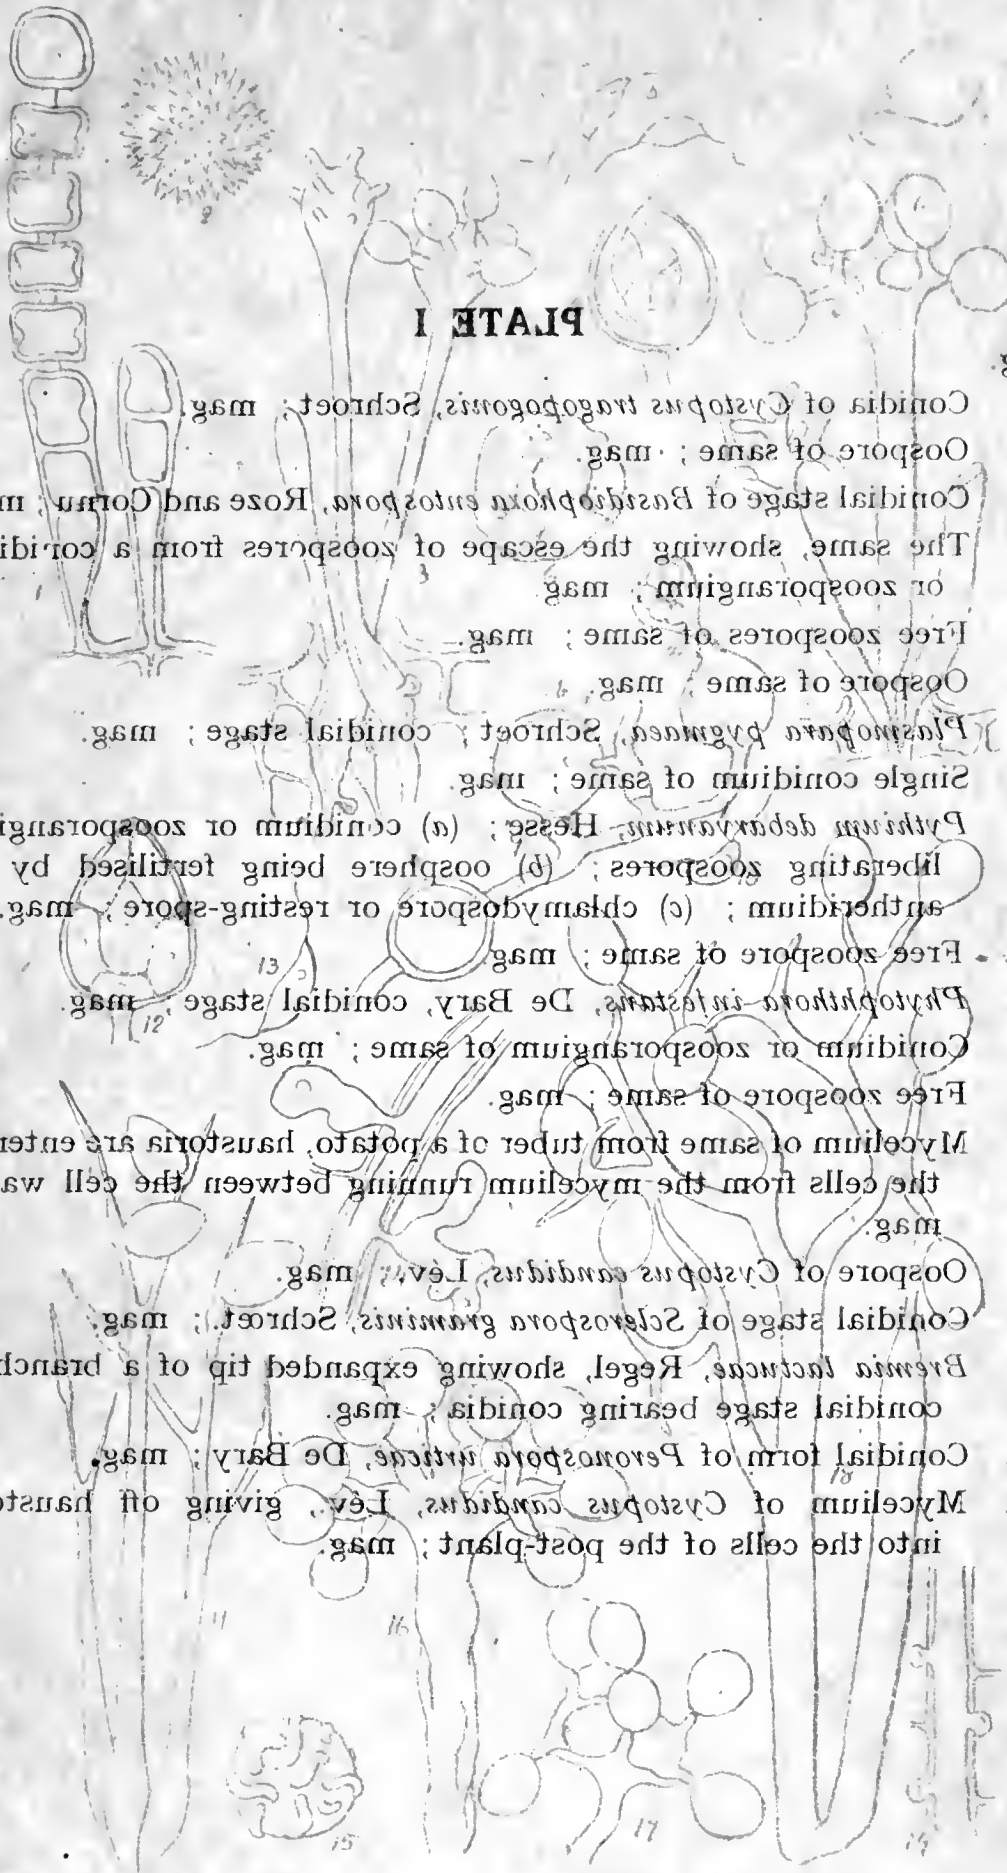 PLATE I
g.
Conidia of Cystopus tragopogonis, Schroet; mag.
Oospore of same ; mag.
Conidial stage of Basidiophora entospora, Roze and Cornu ; m
The same, showing the escape of zoospores from a conidi
or zoosporangium ; mag
Free zoospores of same ; mag.
Oospore of same ; mag.
Plasmopara pygmaea, Schroet ; conidial stage ; mag.
Single conidium of same ; mag.
Pythium debaryanum, Hesse ; (a) conidium or zoosporangi
liberating zoospores ; (b) oosphere being fertilised by
antheridium ; (c) chlamydospore or resting-spore ; mag.
Free zoospore of same ; mag.
Phytophthora infestans, De Bary, conidial stage ; mag.
Conidium or zoosporangium of same ; mag.
Free zoospore of same ; mag.
Mycelium of same from tuber of a potato, haustoria are enter
the cells from the mycelium running between the cell wa
mag.
Oospore of Cystopus candidus, Lév. ; mag.
Conidial stage of Sclerospora graminis, Schroet. ; mag.
Bremia lactucae, Regel, showing expanded tip of a branch
conidial stage bearing conidia ; mag.
Conidial form of Peronospora urticae, De Bary ; mag.
Mycelium of Cystopus candidus, Lév., giving off hausto
into the cells of the post-plant ; mag.
3
13
12
18
11
16
15
17